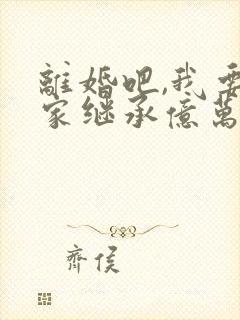 離婚吧,我
家继承億萬
齊侯